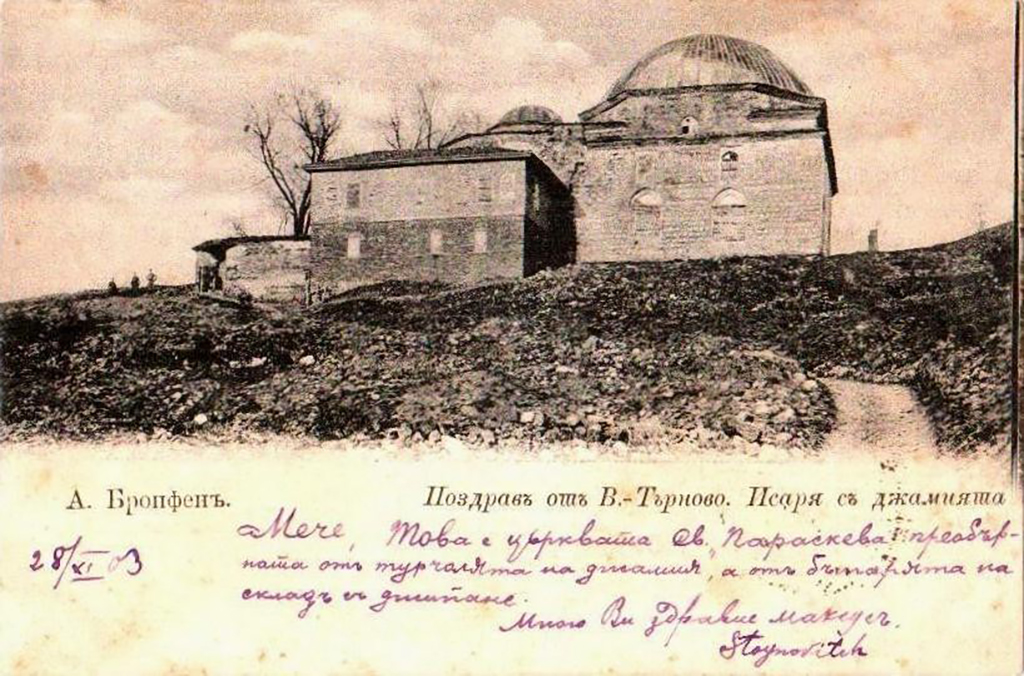 А. Бропфенъ.
Поздравъ отъ В.-Търново. Исаря съ джамията
28/XI 03
Мече, Това е църквата Св. Параскева преобър-
ната отъ турчолята на джамия, а отъ бъларята на
складъ съ
Много Ви здравие
Stoynovitch